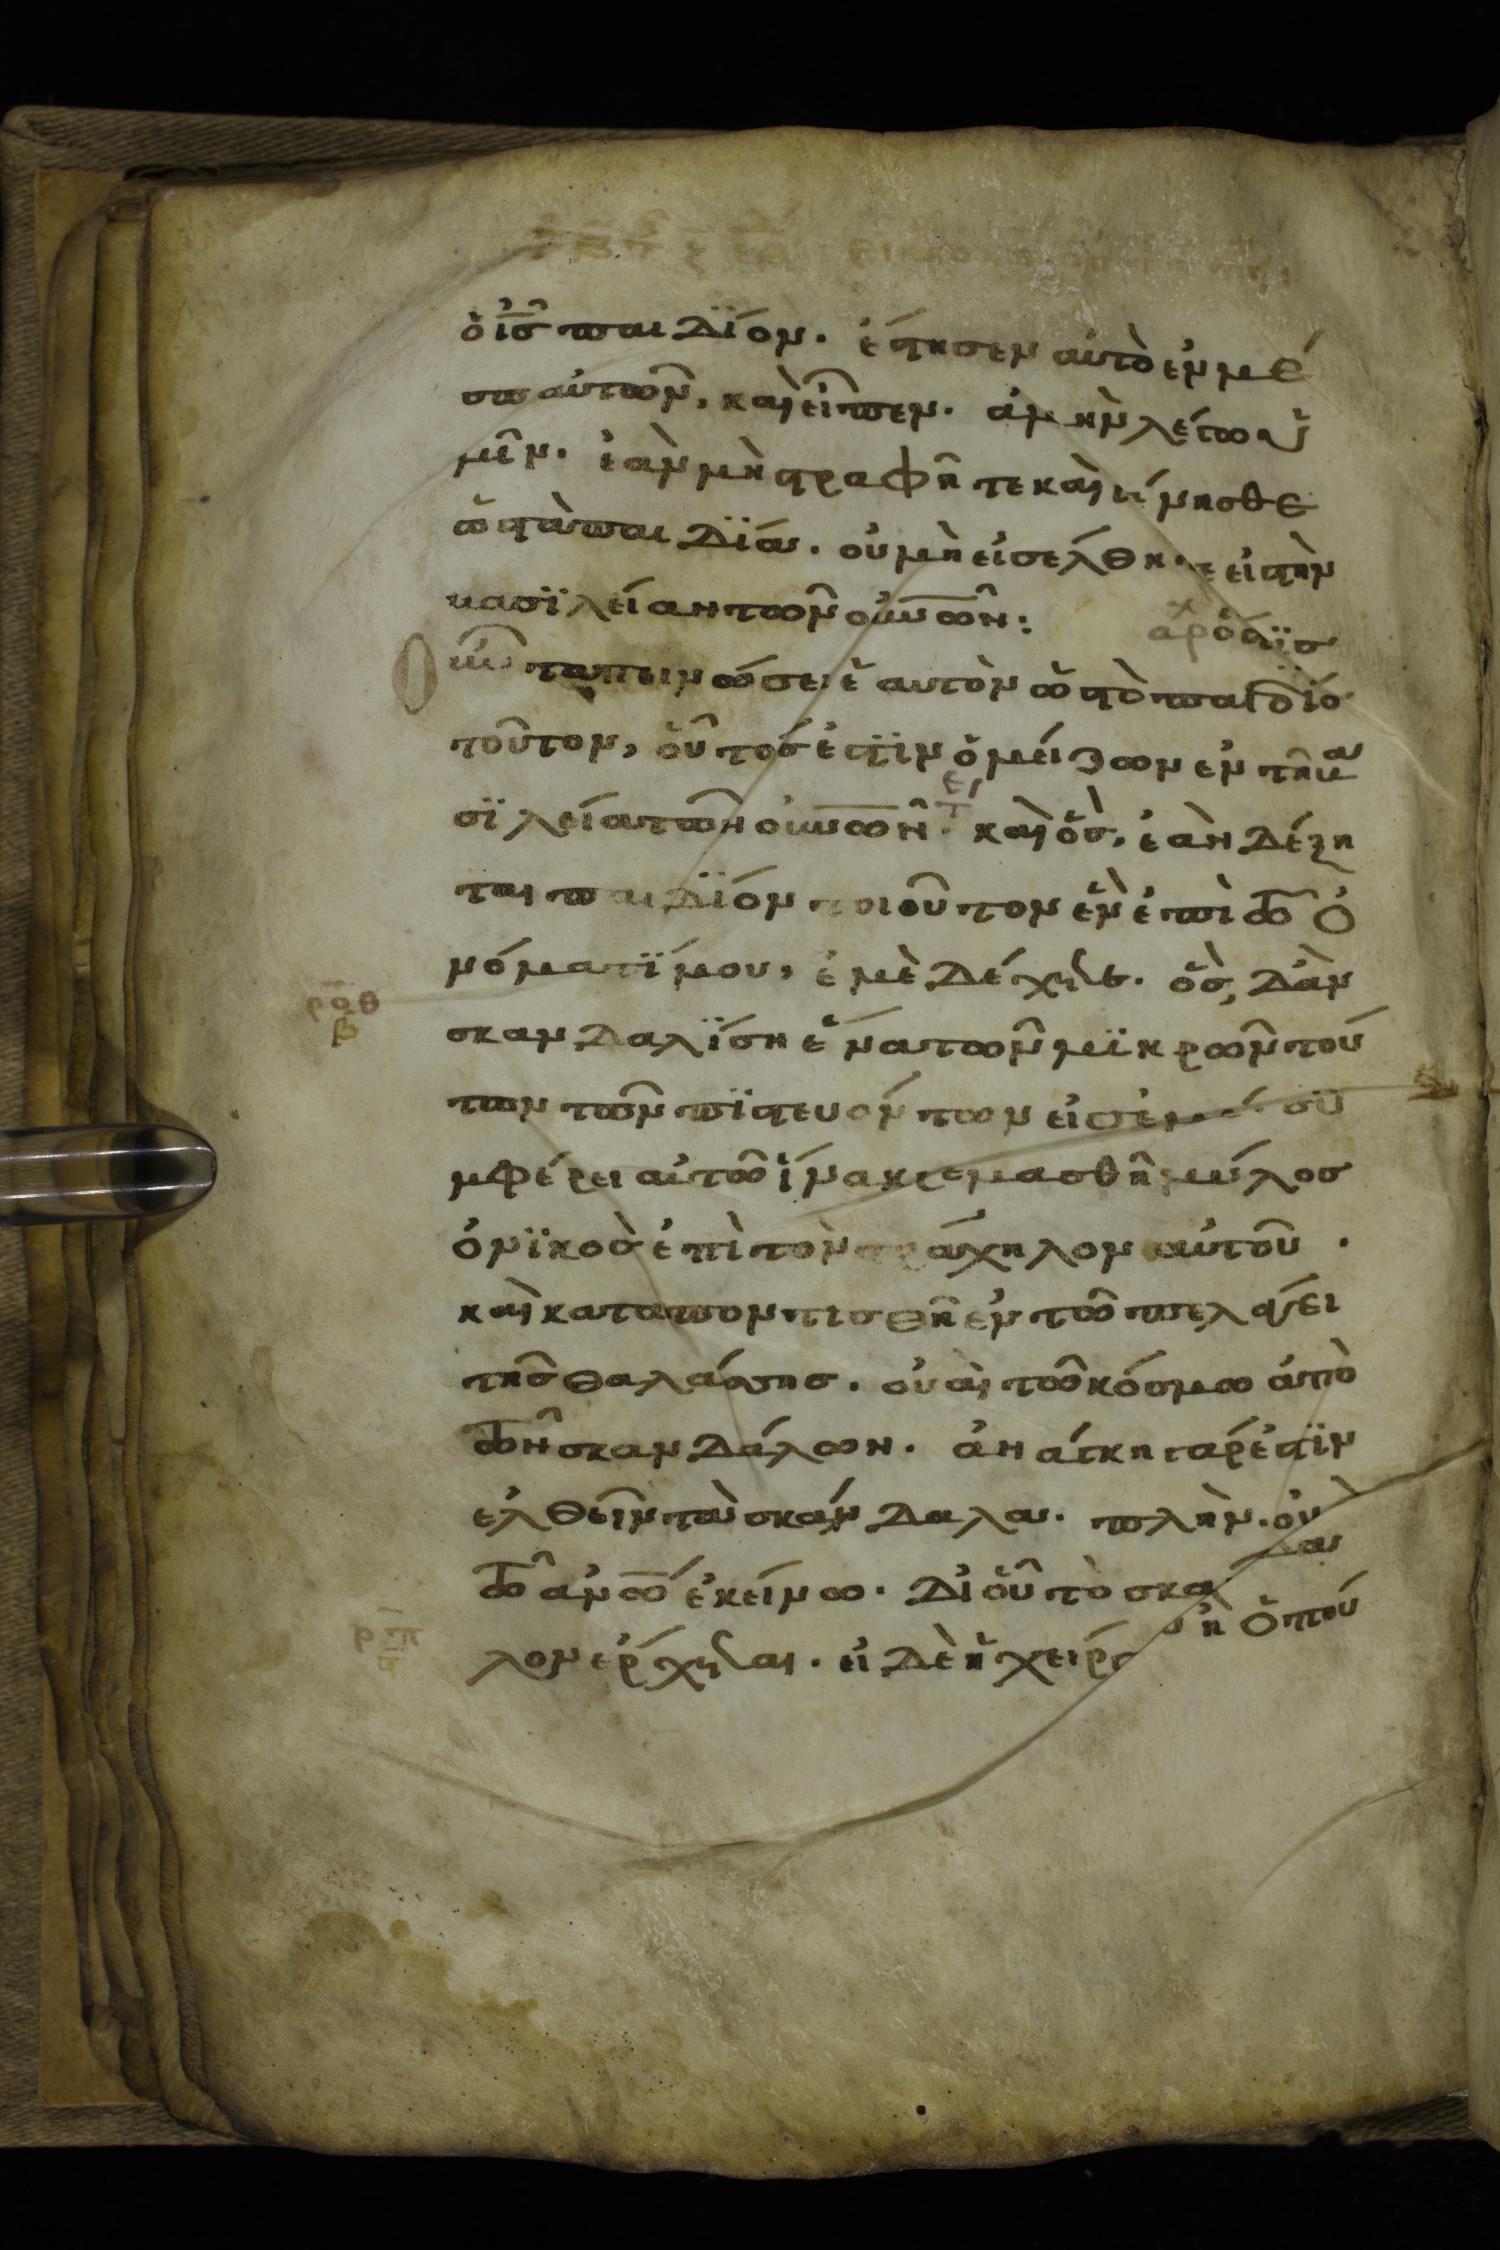 ὁ ἰς παιδϊον. ἔστησεν αὐτὸ ἐν μέ
σω αὐτῶν, καὶ εἶπεν. ἀμὴν λέγω ὑ
μῖν. ἐὰν μὴ στραφῆτε καὶ γένησθε
ὡς τὰ παιδϊα. οὐ μὴ εἰσέλθητε εἰς τὴν
βασϊλείαν τῶν οὐνῶν:
Οὖν ταπεινώσει ἑαυτὸν ὡς τὸ παιδϊο
τοῦτον, οὗτός ἐστϊν ὁ μείζων ἐν τῆ βα
σϊλεία τῶν οὐνῶν. καὶ ὃς, ἐὰν δέξη
ται παιδϊον τοιοῦτον ἓν ἐπὶ τῶ ὀ
νόματϊ μου, ἐμὲ δέχεται. ὃς, δ' ἂν
σκανδαλϊση ἕνα τῶν μϊκρῶν τού
των τῶν πϊστευόντων εἰς ἐμέ. συ
μφέρει αὐτῶ ἵνα κρεμασθῆ μύλος
ὀνϊκὸς ἐπὶ τὸν τράχηλον αὐτοῦ.
καὶ καταποντισθῆ ἐν τῶ πελάγει
τῆς θαλάσσης. οὐαὶ τῶ κόσμω ἀπὸ
τῶν σκανδάλων. ἀνάγκη γάρ ἐστϊν
ἐλθεῖν τὰ σκάνδαλα. πλὴν. οὐαὶ
τῶ ἀνῶ ἐκείνω. δι' οὗ τὸ σκανδα
λον ἔρχεται. εἰ δὲ ἡ χείρ σου ἢ ὁ πού